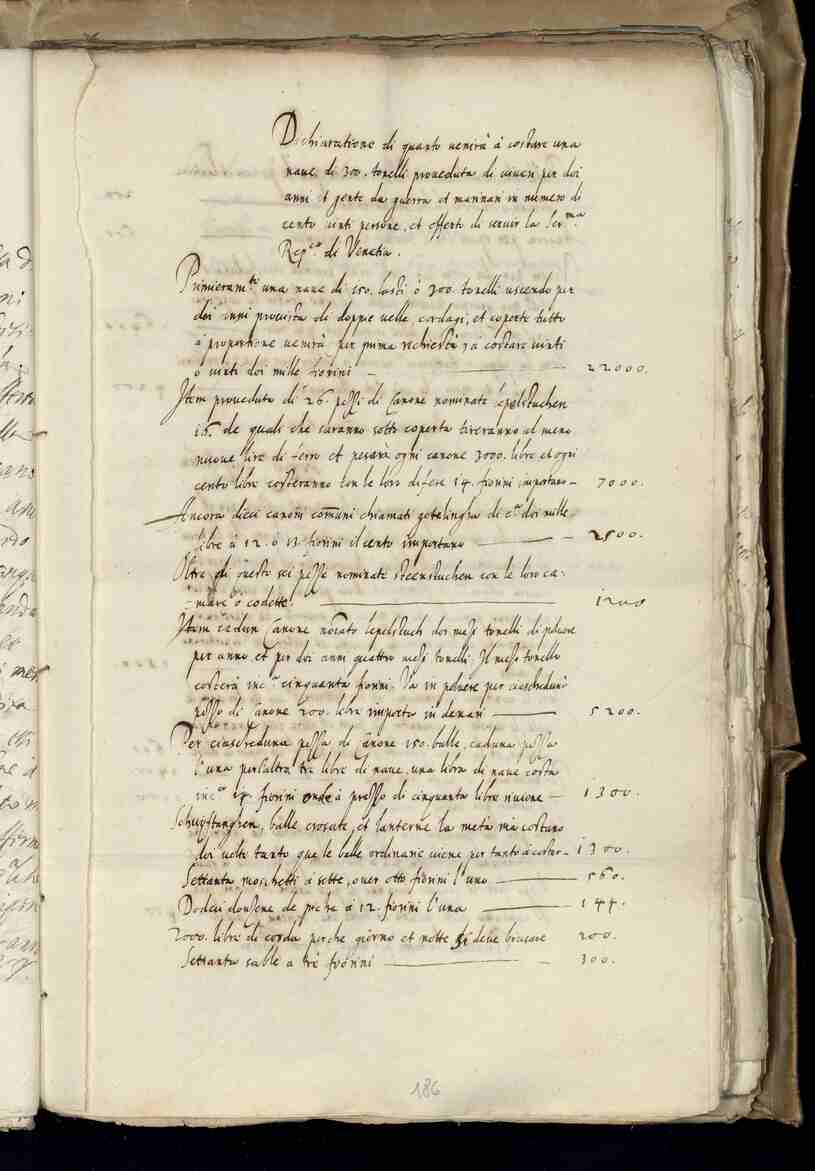 Dechiaratione di quanto uenirà à costare una
naue di 300. tonelli proueduta di uiueri per doi
anni et gente da guerra et marinari in numero di
cento uinti persone, et offerta di seruir la Ser.ma
Rep.ca di Venetia.
Primieram.te una naue di 150. lasti ò 300. tonelli uscendo per
doi anni prouista di doppie uelle, cordagi, et coperte tutto
à proportione uenirà per prima richiesta à costare uinti
ò uinti doi mille fiorini — 22000.
Item proueduta di 26. pezzi di Canone nominati lepelstucken
16. de quali che saranno sotto coperta tireranno al meno
nuoue lire di ferro et pesarà ogni canone 3000. libre et ogni
cento libre costeranno con le loro 14. fiorini importano — 7000.
Ancora dieci canoni com̃uni chiamati gotelinghi di c.a doi mille
libre à 12. ò 13 fiorini il cento importano — 2500.
Oltre di questo sei pezze nominate steenstucken con le loro ca-
mare ò codette. — 1200
Item cadun Canone nõĩato lepelstuch doi mezi tonelli di poluere
per anno et per doi anni quattro mezi tonelli. Il mezo tonello
costerà inc.a cinquanta fiorini. Va in poluere per ciascheduno
pezzo di Canone 200. libre importa in denari — 5200.
Per ciascheduna pezza di Canone 150. balle, caduna pezza
l'una per l'altra tre libre di naue, una libra di naue costa
inc.a fiorini onde à prezzo di cinquanta libre — 1300.
Schuijftanghen, balle crosate, et lanterne la metà ma costano
doi uolte tanto que le balle ordinarie uiene per tanto à costar — 1300.
Settanta moschetti à sette, ouer otto fiorini l'uno — 560.
Dodeci donsene de piche à 12. fiorini l'una — 144.
2000. libre di corda perche giorno et notte si deue brusare 200.
Settanta sable a trè fiorini — 300.
186